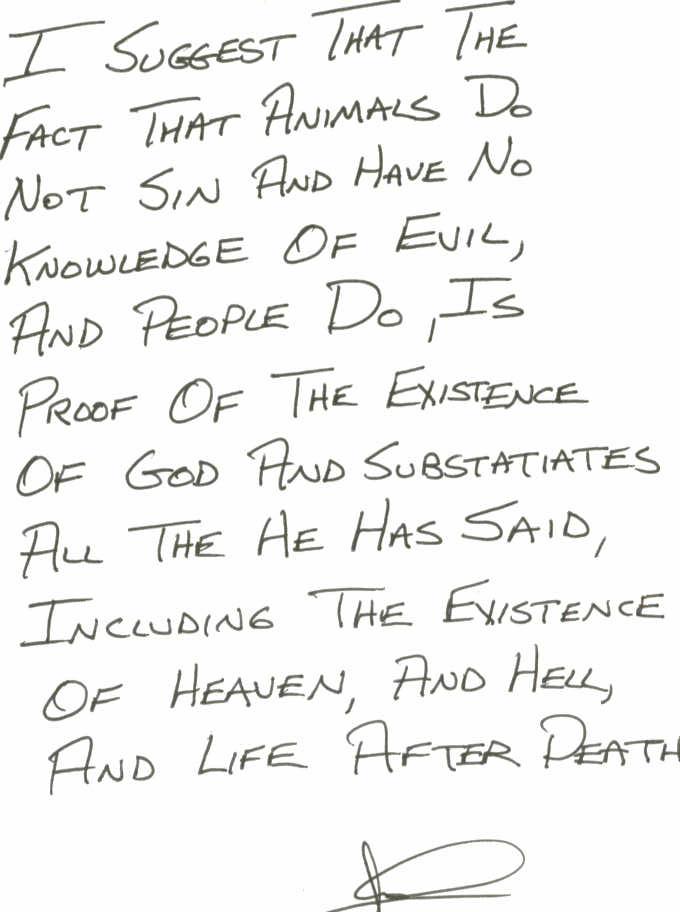 I SUGGEST THAT THE
FACT THAT ANIMALS DO
NOT SIN AND HAVE NO
KNOWLEDGE OF EVIL,
AND PEOPLE DO, IS
PROOF OF THE EXISTENCE
OF GOD AND SUBSTATIATES
ALL THE HE HAS SAID,
INCLUDING THE EXISTENCE
OF HEAVEN, AND HELL,
AND LIFE AFTER DEATH